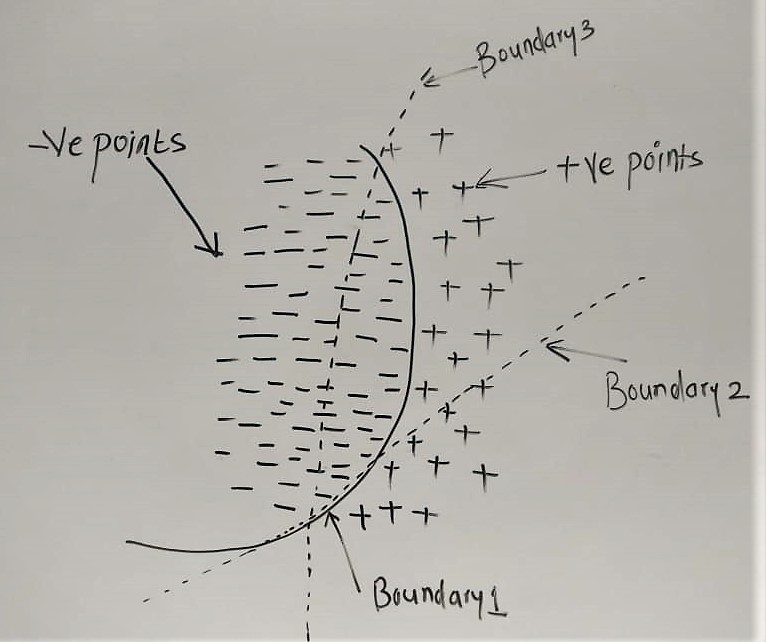 Boundary3
-Ve points
+ve points
Boundary 2
Boundary1